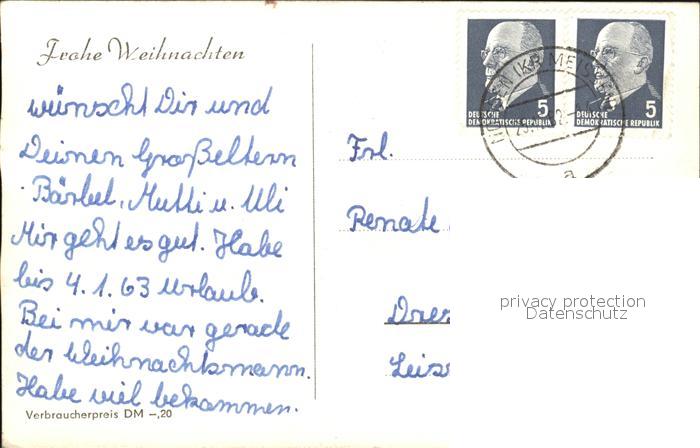 Frohe Weihnachten
wünscht Dir und
Deinen Großeltern
Bärbel, Mutti u. Uli
Mir geht es gut. Habe
bis 4.1.63 Urlaub.
Bei mir war gerade
der Weihnachtsmann.
Habe viel bekommen.
Verbraucherpreis DM –,20
5
DEUTSCHE
DEMOKRATISCHE REPUBLIK
5
DEUTSCHE
DEMOKRATISCHE REPUBLIK
(KR. MEISSEN)
a
Frl.
Renate
privacy protection
Datenschutz